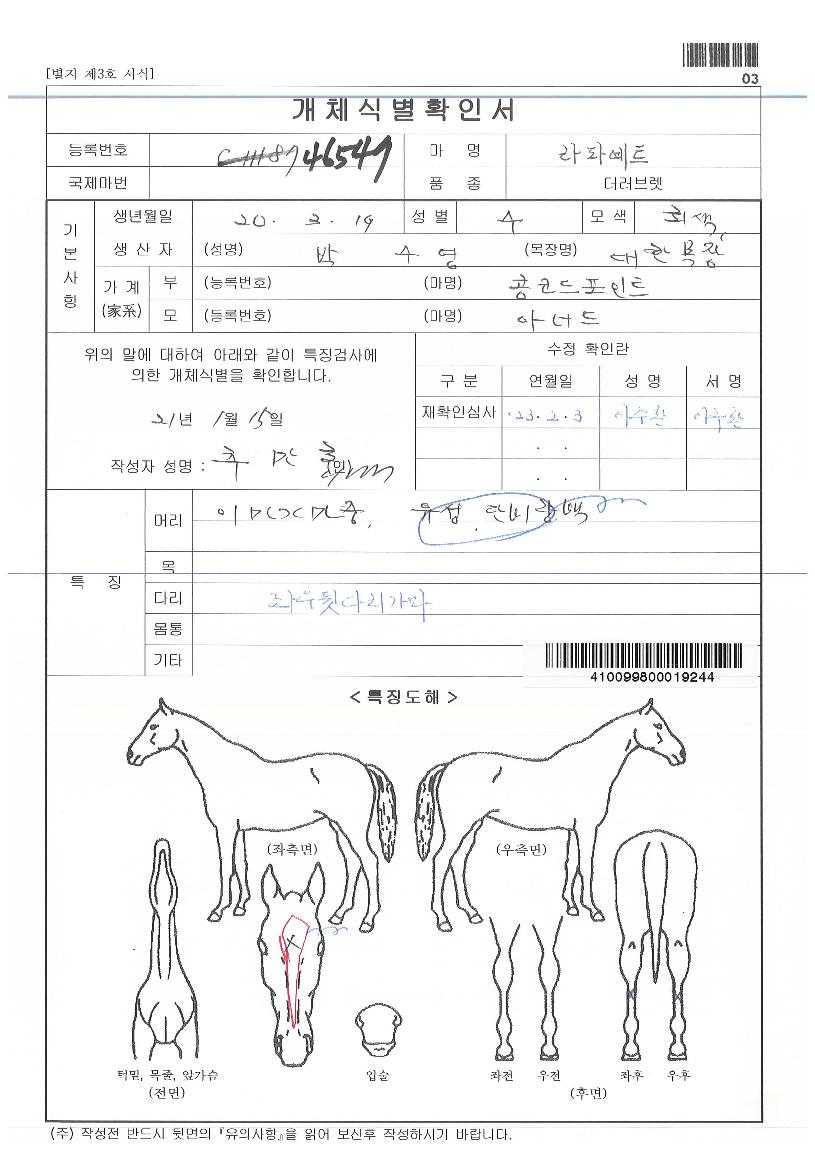 [별지 제3호 서식]
03
개체식별확인서
등록번호 46549 마 명 라화베트
국제마번 품 종 더러브렛
기본사항
생년월일 20. 3. 19 성별 수 모색 회색
생산자 (성명) 박 수 영 (목장명) 대한목장
가계 (家系) 부 (등록번호) (마명) 콩코드포인트
모 (등록번호) (마명) 아너드
위의 말에 대하여 아래와 같이 특징검사에
의한 개체식별을 확인합니다.
21년 1월 15일
작성자 성명 : (인)
수정 확인란
구분 연월일 성명 서명
재확인심사 23. 2. 3 이수환 이수환
. .
. .
특 징
머리
목
다리 좌우뒷다리가마
몸통
기타
410099800019244
< 특징도해 >
(좌측면) (우측면)
턱밑, 목줄, 앞가슴 입술 좌전 우전 좌후 우후
(전면) (후면)
(주) 작성전 반드시 뒷면의 『유의사항』을 읽어 보신후 작성하시기 바랍니다.